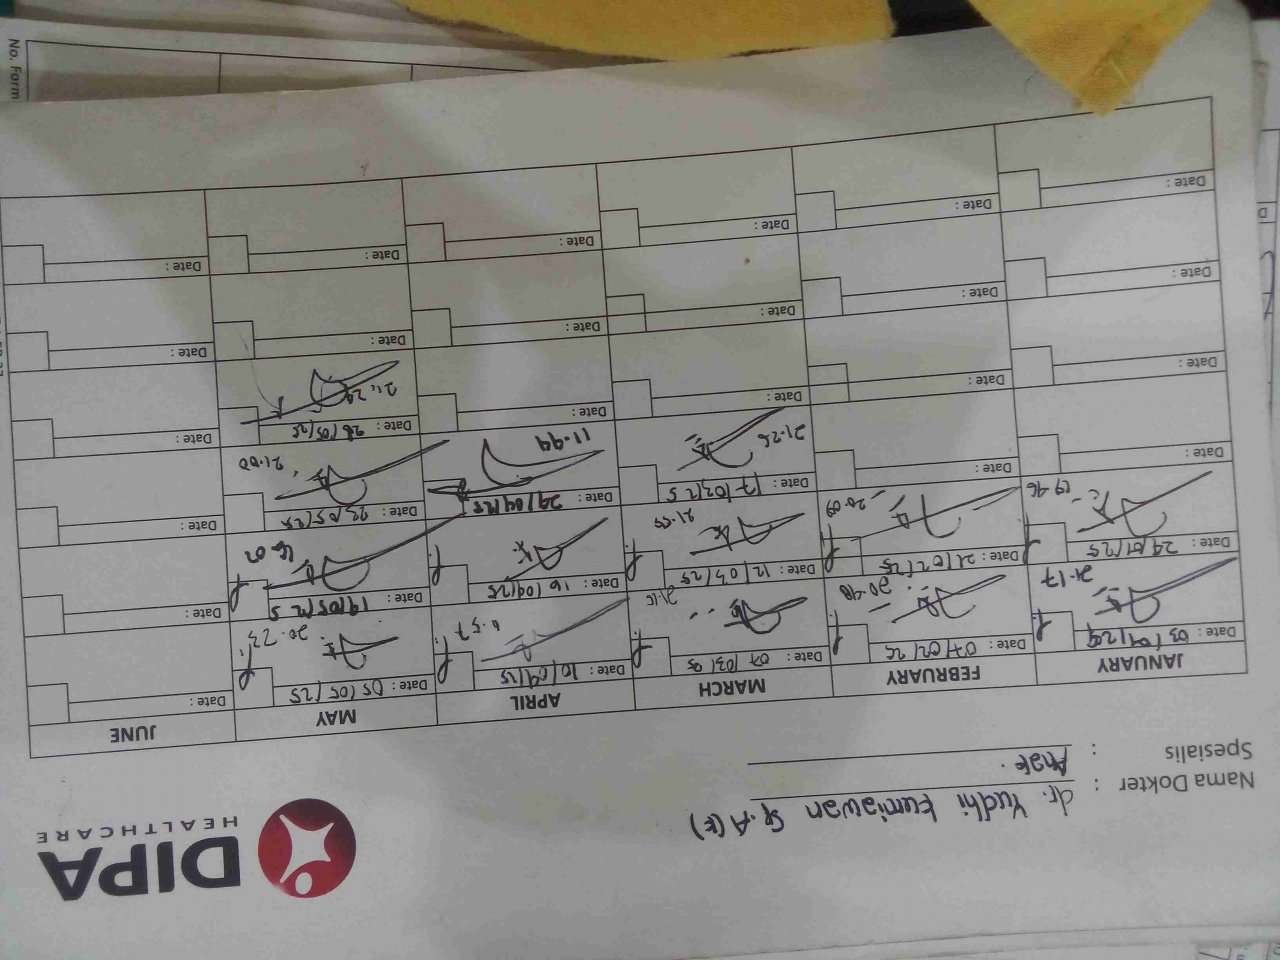 DIPA
HEALTHCARE
Nama Dokter : dr. Yudhi Kurniawan Sp.A(K)
Spesialis : Anak.
JANUARY FEBRUARY MARCH APRIL MAY JUNE
Date: 03/01/24 Date: 07/02/25 Date: 07/03/25 Date: 10/04/25 Date: 05/05/25 Date:
21.17 20.48 21.15 20.23
Date: 24/01/25 Date: 21/02/25 Date: 12/03/25 Date: 16/04/25 Date: 19/05/25 Date:
19.46 20.09 21.55 16.02
Date: Date: Date: 17/03/25 Date: 29/04/25 Date: 23/05/25 Date:
21.26 11.44 21.00
Date: Date: Date: Date: Date: 28/05/25 Date:
21.29
Date: Date: Date: Date: Date: Date:
Date: Date: Date: Date: Date: Date:
No. Form